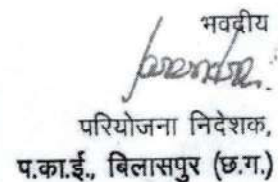 भवदीय
परियोजना निदेशक,
प.का.ई., बिलासपुर (छ.ग.)